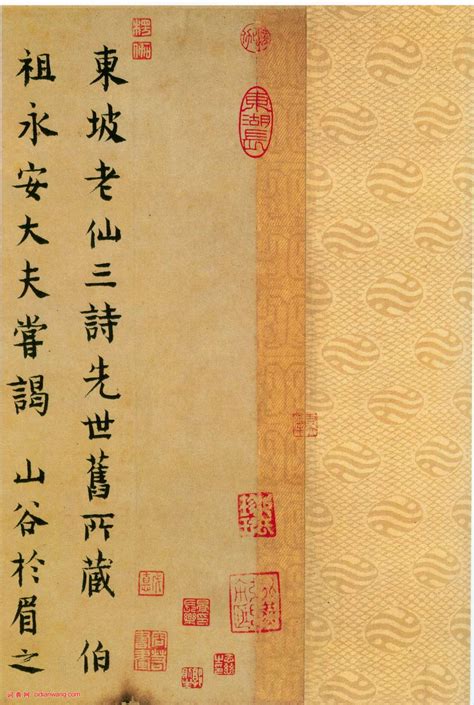 東坡老仙三詩先世舊所藏 伯
祖永安大夫嘗謁 山谷於眉之
東湖長
詞典网 cidianwang.com